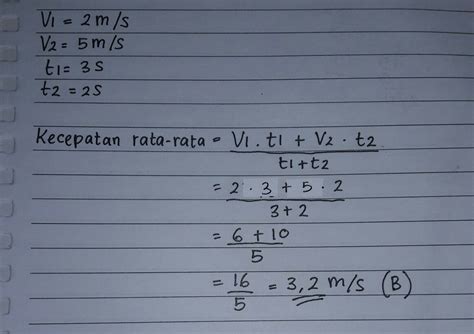 V1 = 2 m/s
V2 = 5 m/s
t1 = 3 s
t2 = 2 s
Kecepatan rata-rata = V1 . t1 + V2 . t2
t1 + t2
= 2 . 3 + 5 . 2
3 + 2
= 6 + 10
5
= 16 = 3,2 m/s (B)
5